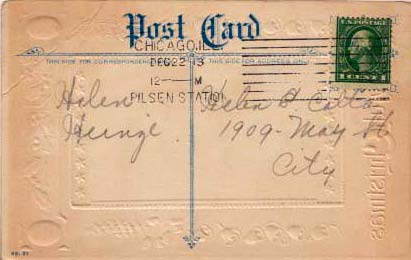 Post Card
CHICAGO, ILL
THIS SIDE FOR CORRESPONDENCE THIS SIDE FOR ADDRESS ONLY
DEC 22 13
12 — M
PILSEN STATION
1 CENT 1
Helen
Heinze
Helen B
1909 - May St
City
Christmas
NO. 31